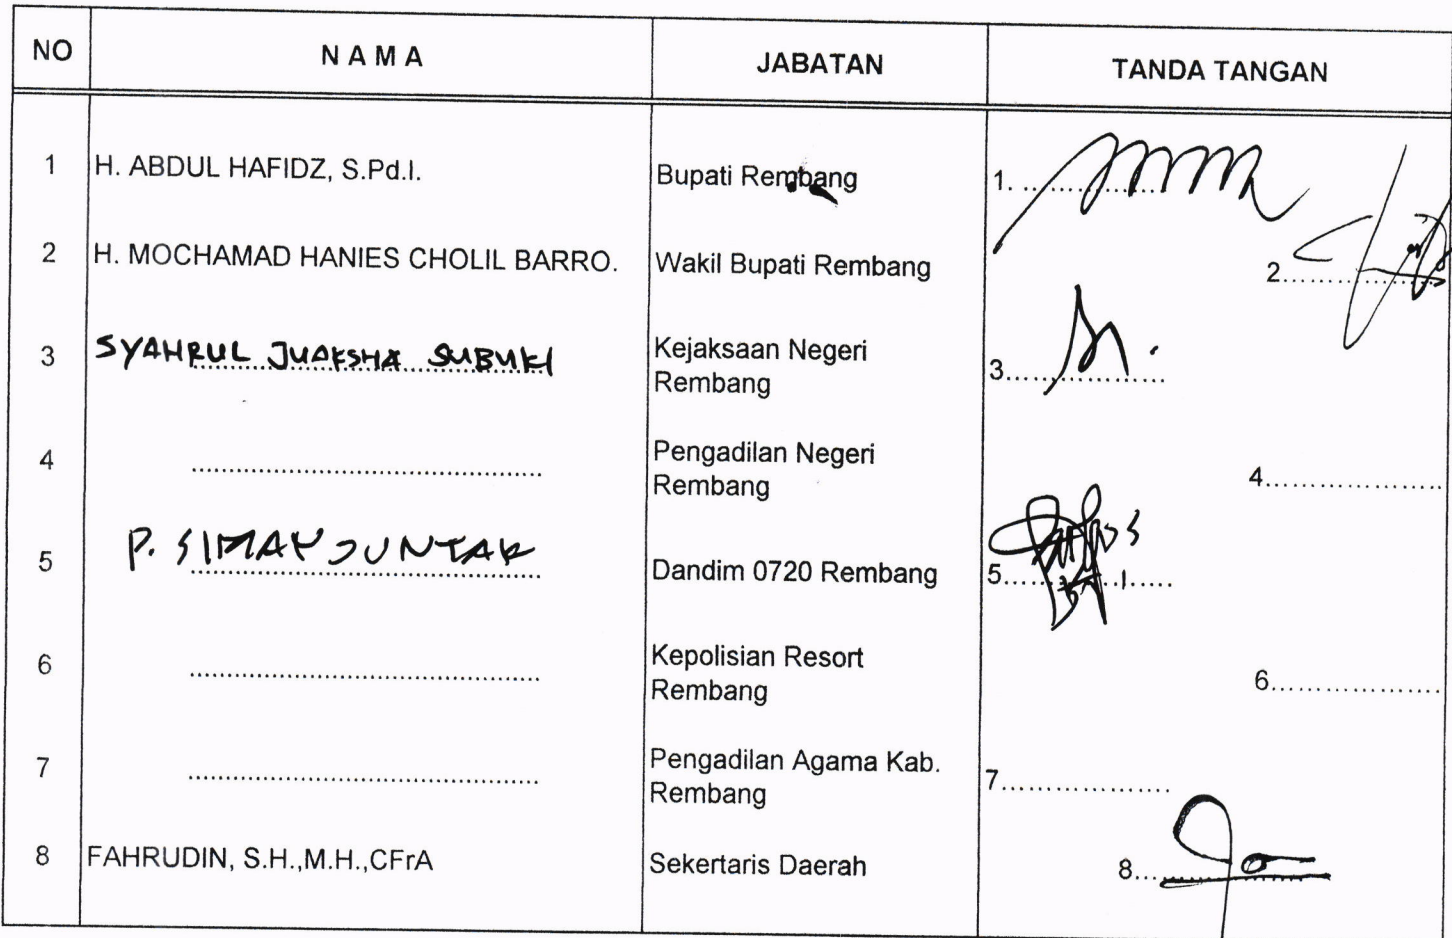 NO N A M A JABATAN TANDA TANGAN
1 H. ABDUL HAFIDZ, S.Pd.I. Bupati Rembang 1. ....................
2 H. MOCHAMAD HANIES CHOLIL BARRO. Wakil Bupati Rembang 2....................
3 SYAHRUL JUAKSHA SUBUKI Kejaksaan Negeri
Rembang 3....................
4 ............................................ Pengadilan Negeri
Rembang 4....................
5 P. SIMANJUNTAK Dandim 0720 Rembang 5....................
6 ............................................ Kepolisian Resort
Rembang 6....................
7 ............................................ Pengadilan Agama Kab.
Rembang 7....................
8 FAHRUDIN, S.H.,M.H.,CFrA Sekertaris Daerah 8....................